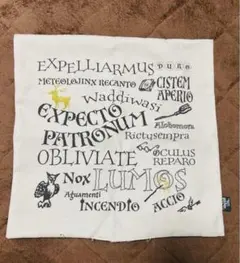 EXPELLIARMUS DURO
METEOLOJINX RECANTO CISTEM
APERIO
Waddiwasi
Alohomora
EXPECTO
PATRONUM
Rictusempra
OBLIVIATE
OCULUS
REPARO
NOX LUMOS
Aguamenti
INCENDIO
ACCIO